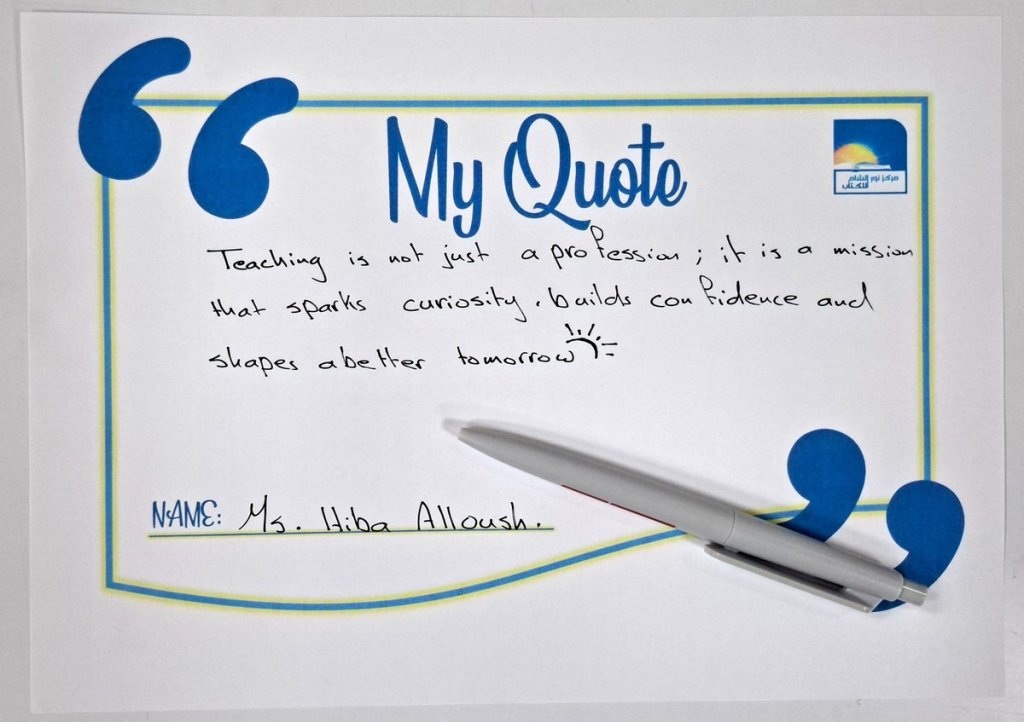 My Quote
مركز نور الشام
للكتاب
Teaching is not just a profession; it is a mission
that sparks curiosity, builds confidence and
shapes a better tomorrow
NAME: Ms. Hiba Alloush.